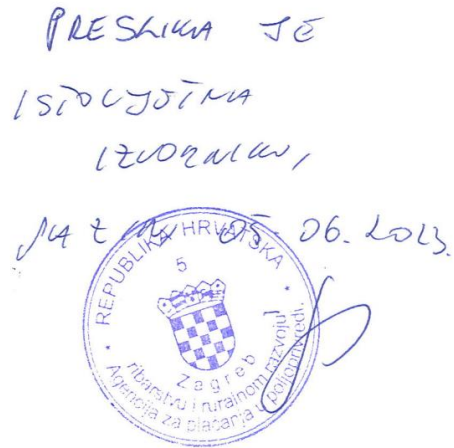 PRESLIKA JE
ISTOVJETNA
IZVORNIKU,
05. 06. 2023.
REPUBLIKA HRVATSKA
5
Zagreb
Agencija za plaćanja u poljoprivredi,
ribarstvu i ruralnom razvoju